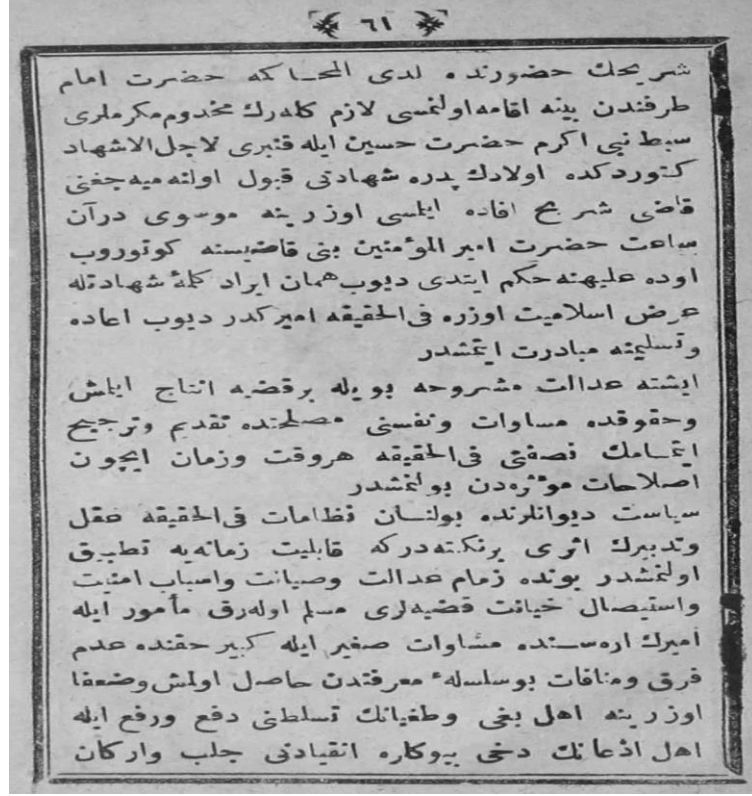 ٦١
شریحك حضورنده لدی المحاكه حضرت امام
طرفندن بینه اقامه اولنمسی لازم كله‌رك مخدوم مكرملری
سبط نبی اكرم حضرت حسین ایله قنبری لاجل الاشهاد
كتوردكده اولادك پدره شهادتی قبول اولنه‌میه‌جغنی
قاضی شریح افاده ایلمسی اوزرینه موسوی درآن
ساعت حضرت امیر المؤمنین بنی قاضیسنه كوتوروب
اوده علیهنه حكم ایتدی دیوب همان ایراد كلمهٔ شهادتله
عرض اسلامیت اوزره فی الحقیقه امیركدر دیوب اعاده
وتسلیمنه مبادرت ایتمشدر
ایشته عدالت مشروحه بویله برقضیه انتاج ایلمش
وحقوقده مساوات ونفسنی مصلحتنده تقدیم وترجیح
ایتمامك نصفتی فی الحقیقه هروقت وزمان ایچون
اصلاحات مؤثره‌دن بولنمشدر
سیاست دیوانلرنده بولنان نظامات فی الحقیقه عقل
وتدبیرك اثری برنكته‌دركه قابلیت زمانه‌یه تطبیق
اولنمشدر بونده زمام عدالت وصیانت واسباب امنیت
واستیصال خیانت قضیه‌لری مسلم اوله‌رق مأمور ایله
آمیرك اره‌سنده مساوات صغیر ایله كبیر حقنده عدم
فرق ومنافات بوسلسلهٔ معرفتدن حاصل اولمش وضعفا
اوزرینه اهل بغی وطغیانك تسلطنی دفع ورفع ایله
اهل اذعانك دخی بیوكاره انقیادتی جلب واركان